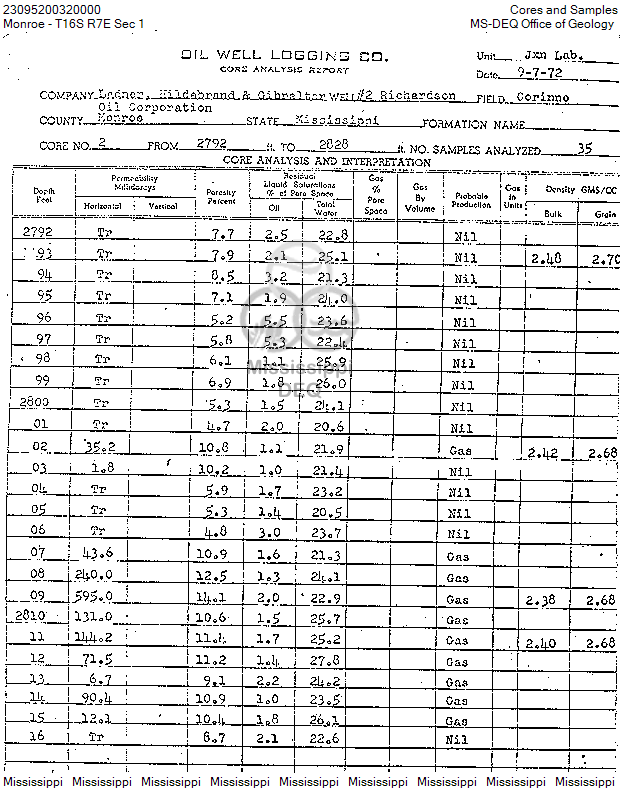 23095200320000 Cores and Samples
Monroe - T16S R7E Sec 1 MS-DEQ Office of Geology
OIL WELL LOGGING CO. Unit Jxn Lab.
CORE ANALYSIS REPORT Date 9-7-72
COMPANY Ledner, Hildebrand & Gibralter WELL #2 Richardson FIELD Corinne
Oil Corporation
COUNTY Monroe STATE Mississippi FORMATION NAME
CORE NO. 2 FROM 2792 ft. TO 2828 ft. NO. SAMPLES ANALYZED 35
CORE ANALYSIS AND INTERPRETATION
Depth Feet Permeability Millidarcys Horizontal Vertical Porosity Percent Residual Liquid Saturations % of Pore Space Oil Total Water Gas % Pore Space Gas By Volume Probable Production Gas in Units Density GMS/CC Bulk Grain
2792 Tr 7.7 2.5 22.8 Nil
93 Tr 7.9 2.1 25.1 Nil 2.48 2.70
94 Tr 8.5 3.2 21.3 Nil
95 Tr 7.1 1.9 24.0 Nil
96 Tr 5.2 5.5 23.6 Nil
97 Tr 5.8 5.3 22.4 Nil
98 Tr 6.1 1.1 25.9 Nil
99 Tr 6.9 1.8 26.0 Nil
2800 Tr 5.3 1.5 24.1 Nil
01 Tr 4.7 2.0 20.6 Nil
02 35.2 10.8 1.1 21.9 Gas 2.42 2.68
03 1.8 10.2 1.0 21.4 Nil
04 Tr 5.9 1.7 23.2 Nil
05 Tr 5.3 1.4 20.5 Nil
06 Tr 4.8 3.0 23.7 Nil
07 43.6 10.9 1.6 21.3 Gas
08 240.0 12.5 1.3 24.1 Gas
09 595.0 14.1 2.0 22.9 Gas 2.38 2.68
2810 131.0 10.6 1.5 25.7 Gas
11 144.2 11.4 1.7 25.2 Gas 2.40 2.68
12 71.5 11.2 1.4 27.8 Gas
13 6.7 9.1 2.2 24.2 Gas
14 90.4 10.9 1.0 23.5 Gas
15 12.1 10.4 1.8 26.1 Gas
16 Tr 8.7 2.1 22.6 Nil
Mississippi
DEQ
Mississippi Mississippi Mississippi Mississippi Mississippi Mississippi Mississippi Mississippi Mississippi